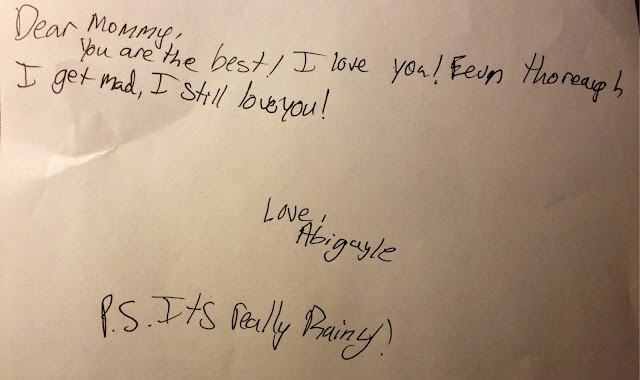 Dear Mommy,
You are the best! I love you! Eevn thoreaugh
I get mad, I still love you!
Love,
Abigayle
P.S. It's really Rainy!